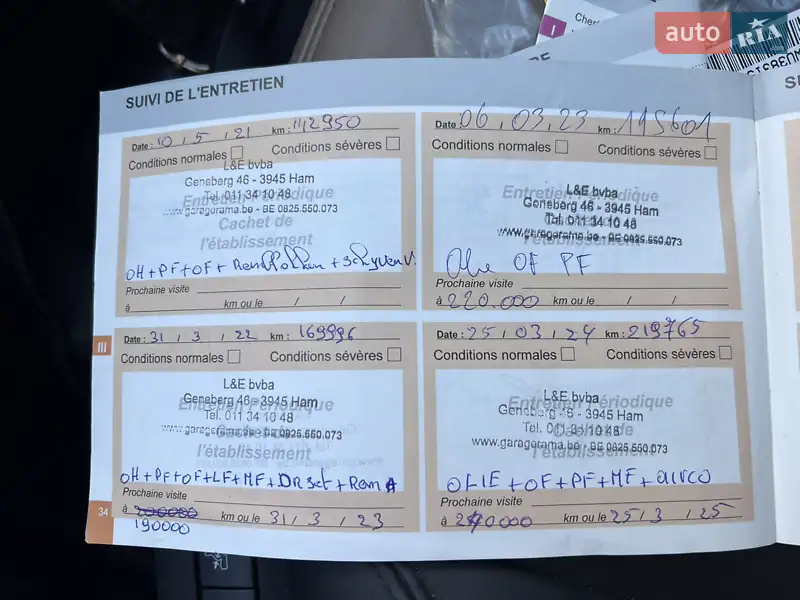 auto RIA
SUIVI DE L'ENTRETIEN
Date : 10 , 5 , 21 km : 142950
Conditions normales Conditions sévères
L&E bvba
Geneberg 46 - 3945 Ham
Entretien Périodique
Tel. 011 34 10 48
www.garagerama.be - BE 0825.550.073
Cachet de
l'établissement
OH + PF + OF +
Prochaine visite
à km ou le / /
Date : 31 , 3 , 22 km : 169996
Conditions normales Conditions sévères
L&E bvba
Geneberg 46 - 3945 Ham
Entretien Périodique
Tel. 011 34 10 48
www.garagerama.be - BE 0825.550.073
l'établissement
OH + PF + OF + LF + MF + DR set + Rem A
Prochaine visite
à 200000 km ou le 31 / 3 / 23
190000
34
III
Date : 06 , 03 , 23 km : 195601
Conditions normales Conditions sévères
L&E bvba
Entretien Périodique
Geneberg 46 - 3945 Ham
Tel. 011 34 10 48
www.garagerama.be - BE 0825.550.073
l'établissement
OF PF
Prochaine visite
à 220.000 km ou le / /
Date : 25 , 03 , 24 km : 219765
Conditions normales Conditions sévères
L&E bvba
Entretien Périodique
Geneberg 46 - 3945 Ham
Tel. 011 31 10 48
Cachet de
www.garagerama.be - BE 0825.550.073
l'établissement
OLIE + OF + PF + MF + airco
Prochaine visite
à 240000 km ou le 25 / 3 / 25